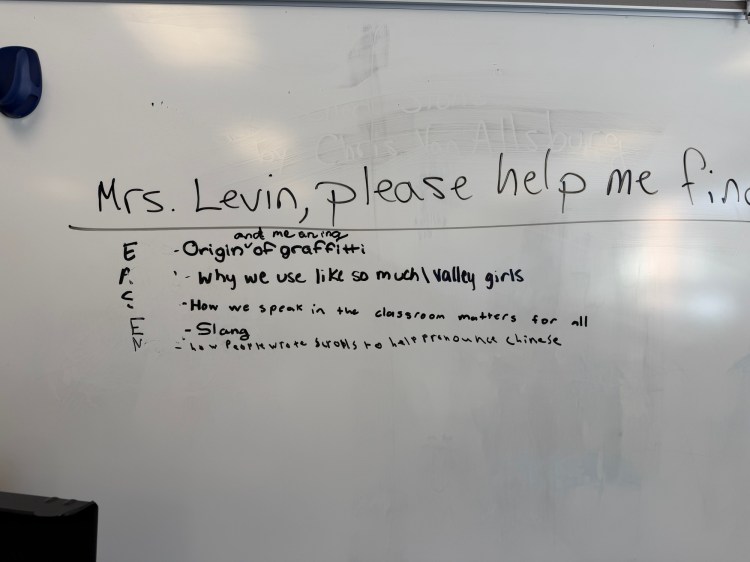 by Chris Van Allsburg
Mrs. Levin, please help me find
and meaning
E - Origin of graffitti
P. - Why we use like so much \ valley girls
C - How we speak in the classroom matters for all
E - Slang
N - how People wrote scrolls to help pronounce Chinese